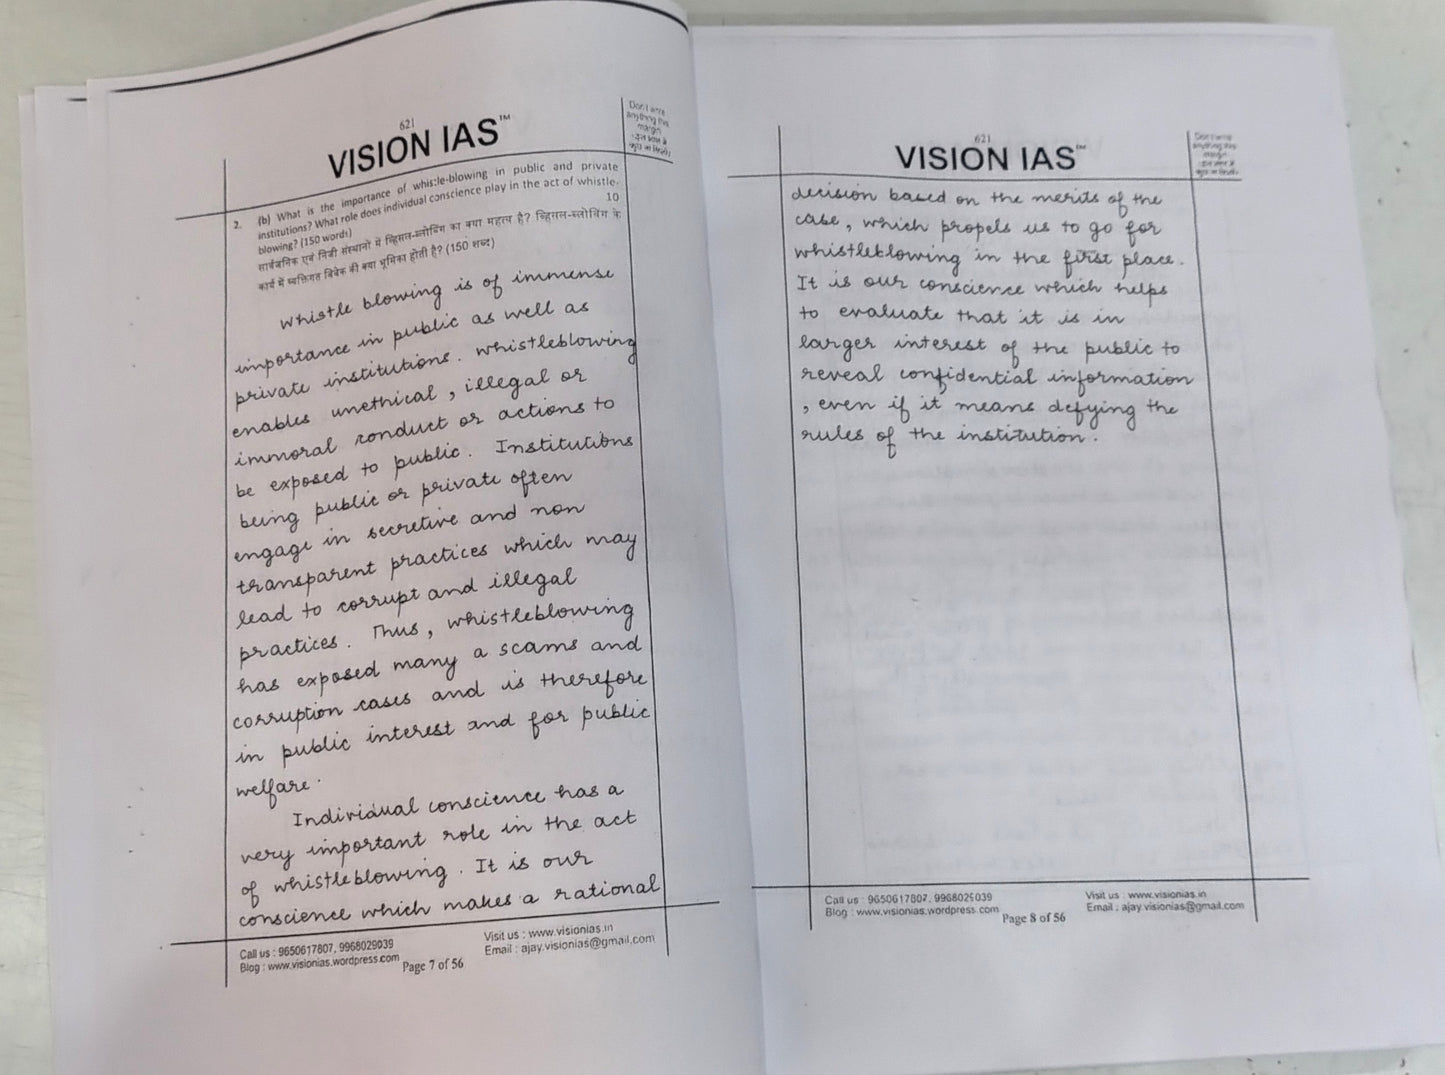 621
VISION IAS™
Don't write
anything this
margin
2. (b) What is the importance of whistle-blowing in public and private
institutions? What role does individual conscience play in the act of whistle-
blowing? (150 words)
10
सार्वजनिक एवं निजी संस्थानों में व्हिसल-ब्लोविंग का क्या महत्व है? व्हिसल-ब्लोविंग के
कार्य में व्यक्तिगत विवेक की क्या भूमिका होती है? (150 शब्द)
Whistle blowing is of immense
importance in public as well as
private institutions. Whistleblowing
enables unethical, illegal or
immoral conduct or actions to
be exposed to public. Institutions
being public or private often
engage in secretive and non
transparent practices which may
lead to corrupt and illegal
practices. Thus, whistleblowing
has exposed many a scams and
corruption cases and is therefore
in public interest and for public
welfare.
Individual conscience has a
very important role in the act
of whistleblowing. It is our
conscience which makes a rational
Call us : 9650617807, 9968029039
Blog : www.visionias.wordpress.com
Page 7 of 56
Visit us : www.visionias.in
Email : ajay.visionias@gmail.com
621
VISION IAS™
Don't write
anything this
margin
decision based on the merits of the
case, which propels us to go for
whistleblowing in the first place.
It is our conscience which helps
to evaluate that it is in
larger interest of the public to
reveal confidential information
, even if it means defying the
rules of the institution.
Call us : 9650617807, 9968029039
Blog : www.visionias.wordpress.com
Page 8 of 56
Visit us : www.visionias.in
Email : ajay.visionias@gmail.com